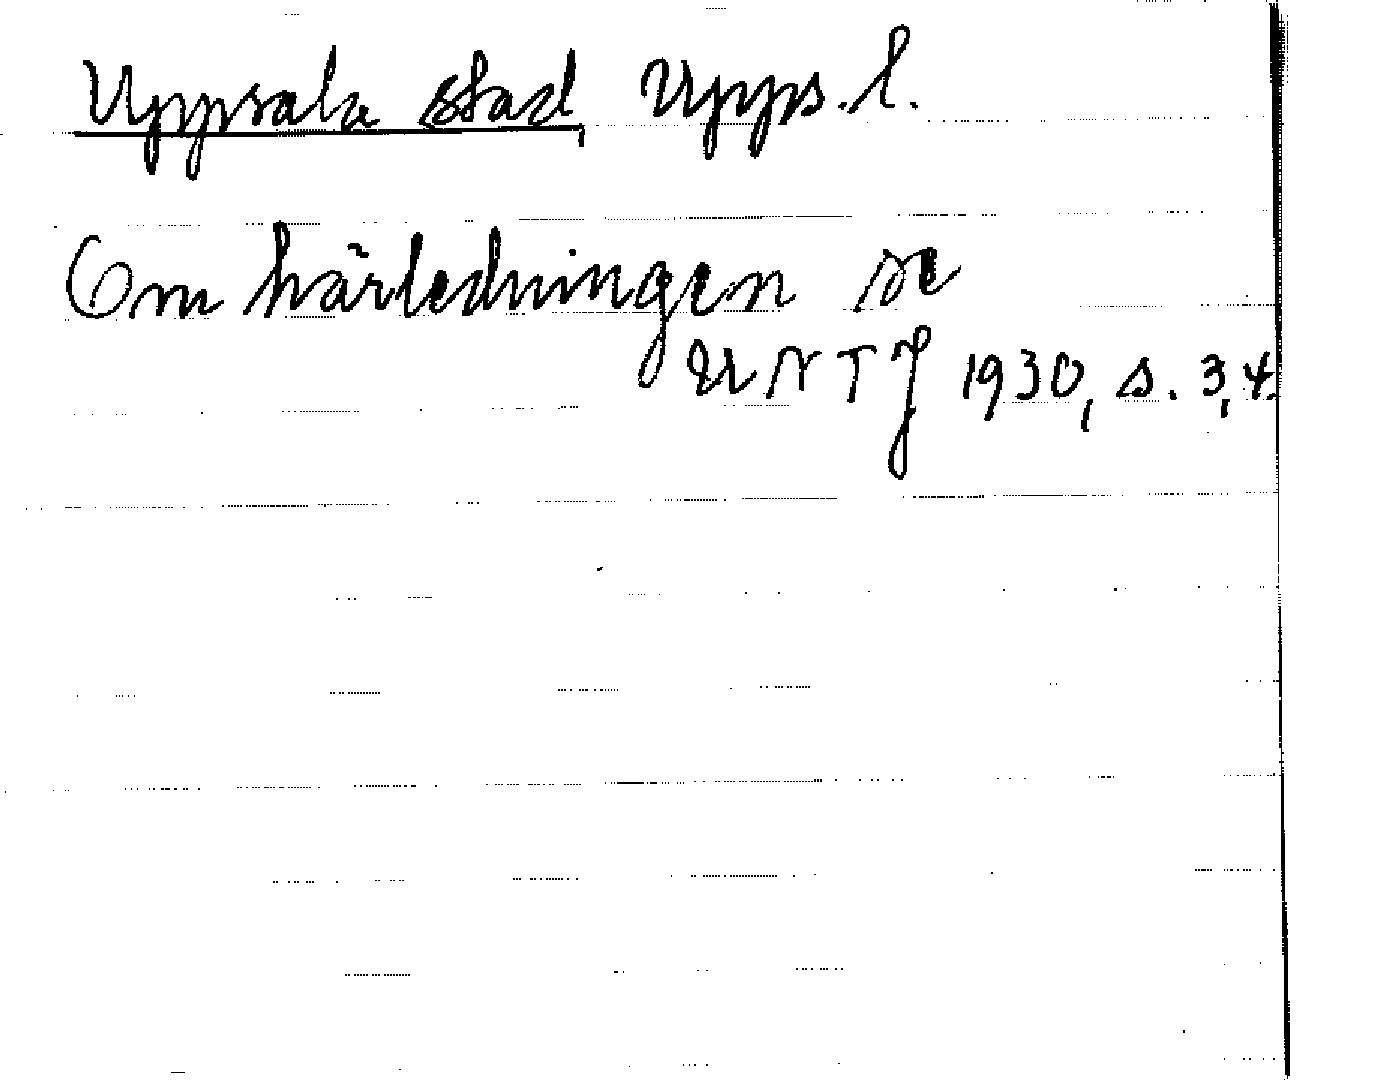 Uppsala stad, Upps. l.
Om härledningen se
UNTJ 1930, s. 3, 4.